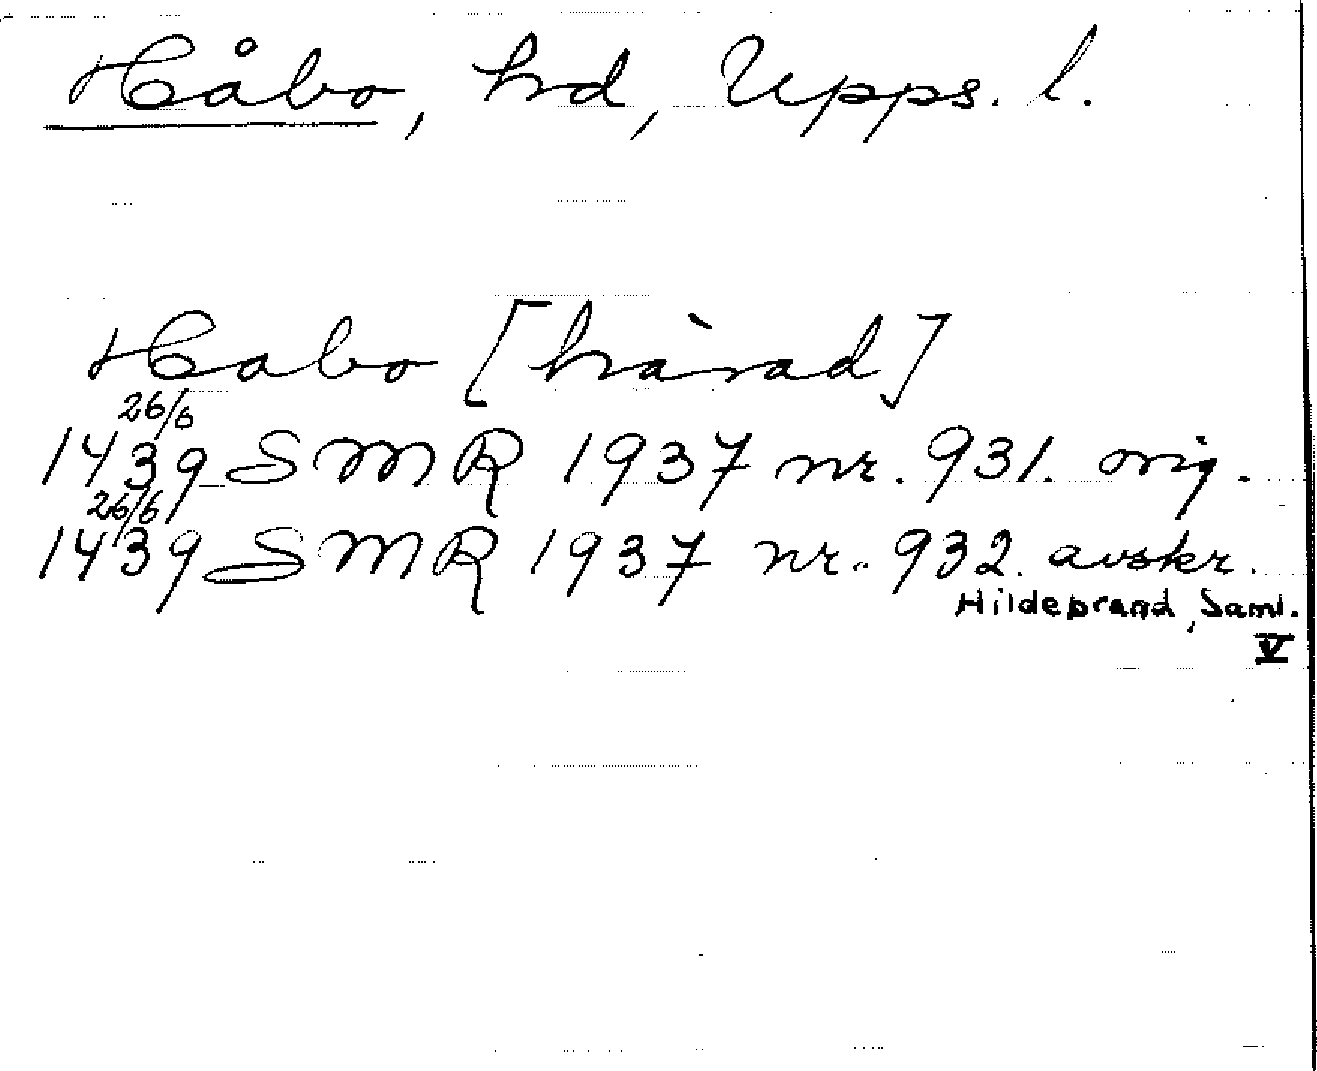 Håbo, hd, Upps. l.
Habo [härad]
26/6
1439 SMR 1937 nr. 931. orig.
26/6
1439 SMR 1937 nr. 932. avskr.
Hildebrand, Saml.
V